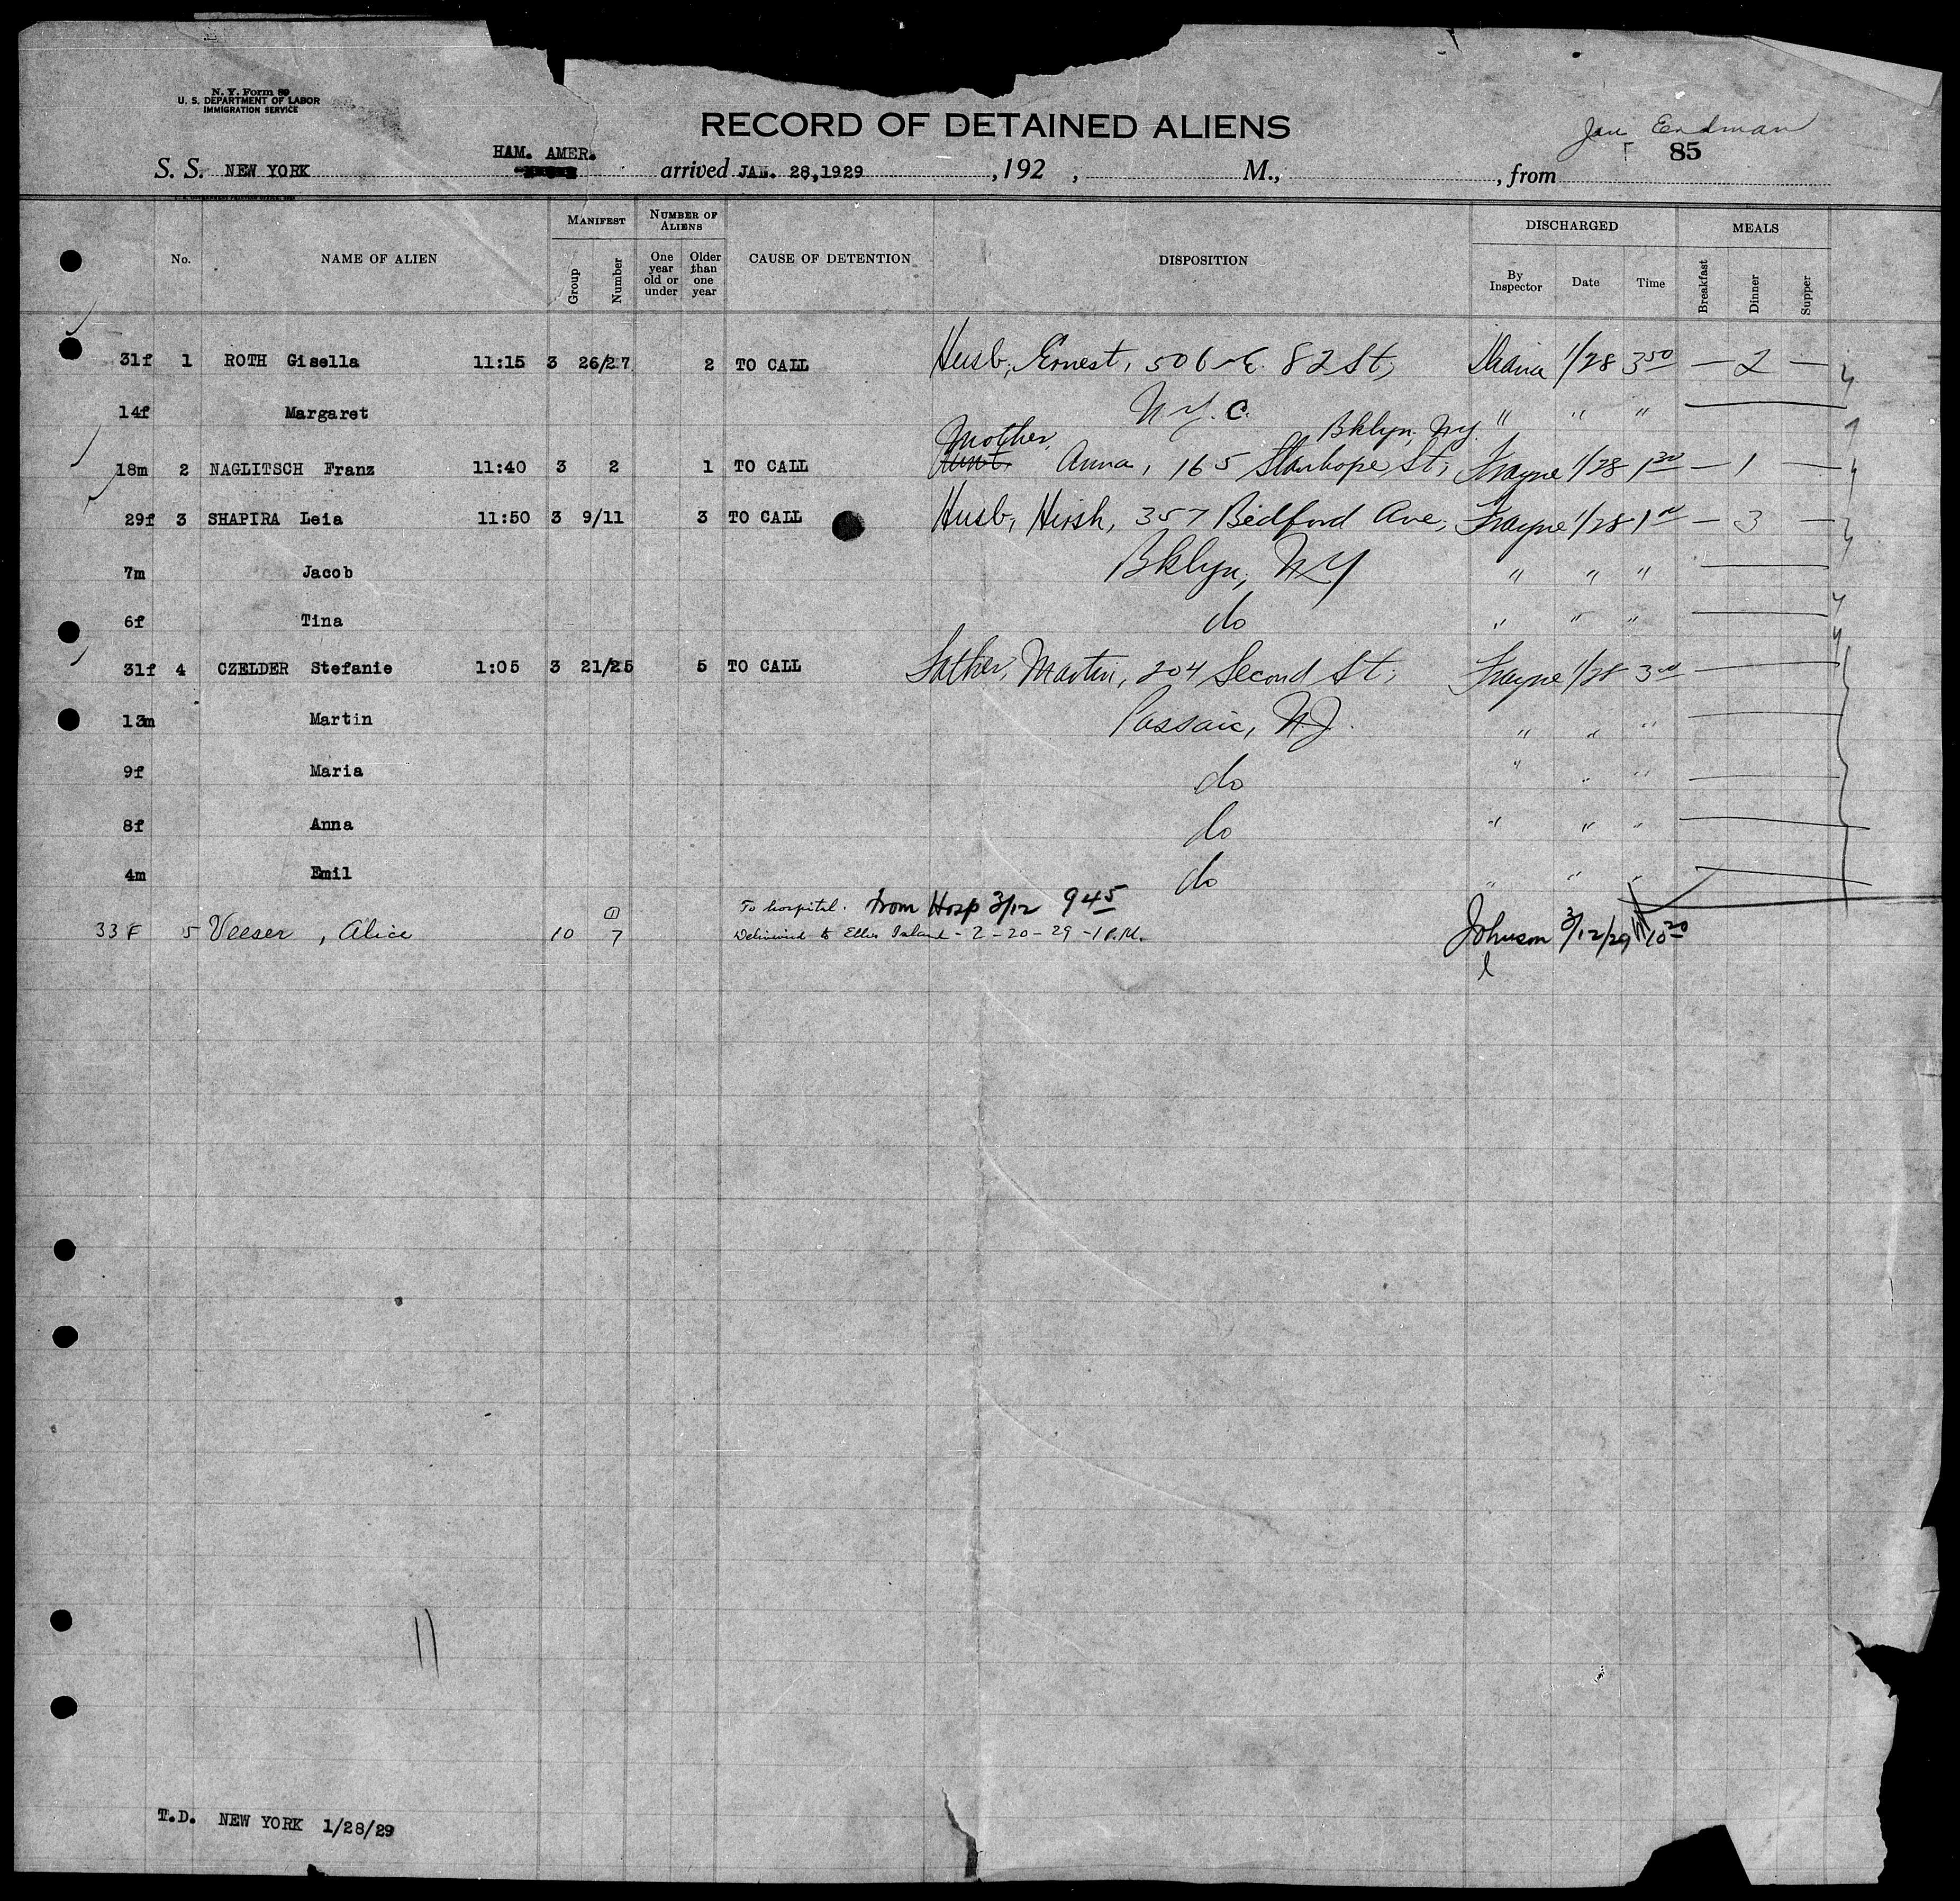 N. Y. Form 89
U. S. DEPARTMENT OF LABOR
IMMIGRATION SERVICE
RECORD OF DETAINED ALIENS
Jan
85
HAM. AMER.
S. S. NEW YORK arrived JAN. 28,1929 , 192 , M., , from
No. NAME OF ALIEN MANIFEST NUMBER OF ALIENS CAUSE OF DETENTION DISPOSITION DISCHARGED MEALS
Group Number One year old or under Older than one year By Inspector Date Time Breakfast Dinner Supper
31f 1 ROTH Gisella 11:15 3 26/27 2 TO CALL Husb, Ernest, 506 E. 82 St, 1/28 3 50 — 2 —
14f Margaret N.Y.C. " " "
Mother, Bklyn, N.Y.
18m 2 NAGLITSCH Franz 11:40 3 2 1 TO CALL Aunt Anna, 165 Stanhope St, Frayne 1/28 1 30 — 1 —
29f 3 SHAPIRA Leia 11:50 3 9/11 3 TO CALL Husb, Hirsh, 357 Bedford Ave, Frayne 1/28 1 00 — 3 —
7m Jacob Bklyn, NY " " "
6f Tina do " " "
31f 4 CZELDER Stefanie 1:05 3 21/25 5 TO CALL Father, Martin, 204 Second St, Frayne 1/28 3 00
13m Martin Passaic, NJ. " " "
9f Maria do " " "
8f Anna do " " "
4m Emil do " " "
To hospital. From Hosp 3/12 9 45
33 F 5 Veeser, Alice 10 (1) 7 Delivered to Ellis Island - 2-20-29 - 1 P.M. Johnson 3/12/29 10 20
T.D. NEW YORK 1/28/29